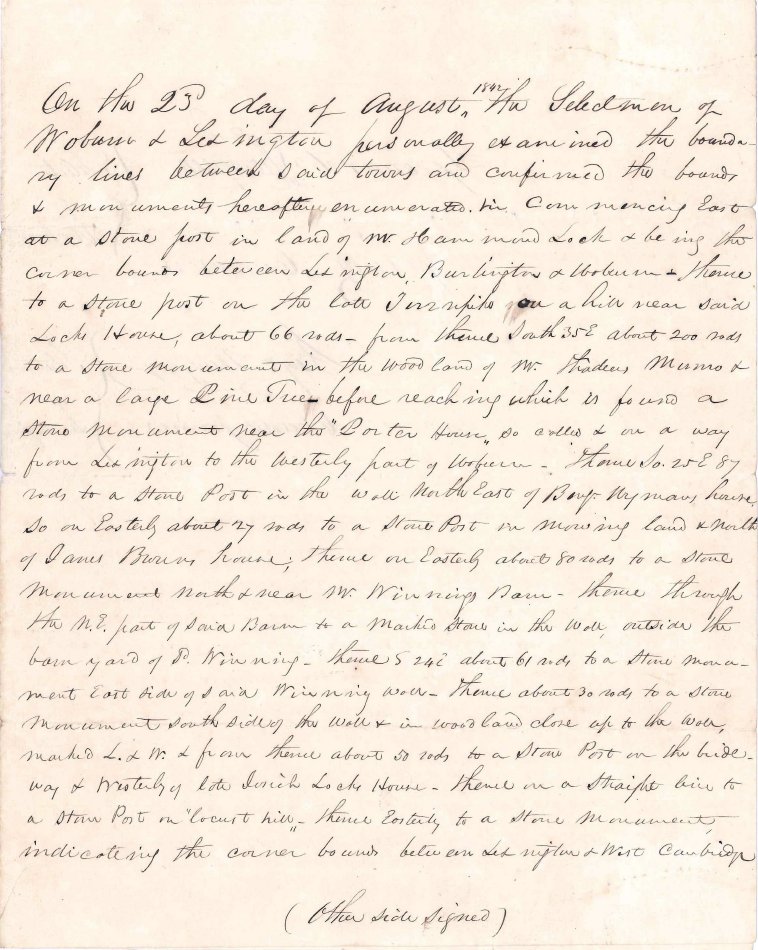 On the 23d day of August, 1842, the Selectmen of
Woburn & Lexington personally examined the bounda-
ry lines between said towns and confirmed the bounds
& monuments hereafter enumerated. viz. Commencing East
at a stone post in land of Mr. Hammond Lock & being the
corner bounds between Lexington, Burlington & Woburn - thence
to a stone post on the late Turnpike on a hill near said
Locks House, about 66 rods - from thence South 35 E about 200 rods
to a stone monument in the woodland of Mr. Thadeus Munro &
near a large Pine Tree - before reaching which is found a
stone monument near the "Porter House, so called & on a way
from Lexington to the Westerly part of Woburn - Thence So. 25 E 87
rods to a stone Post in the wall North East of Benj. Wymans house.
So on Easterly about 27 rods to a stone Post in mowing land & North
of James Browns house; thence on Easterly about 80 rods to a stone
monument north & near Mr. Winnings Barn - thence through
the N.E. part of said Barn to a marked stone in the wall, outside the
barn yard of Winning - thence S 24 E about 61 rods to a stone monu-
ment East side of said Winning wall - thence about 30 rods to a stone
monument south side of the wall & in woodland close up to the wall,
marked L. & W. & from thence about 50 rods to a stone Post on the bridle-
way & Westerly of late Josiah Locks House - thence on a straight line to
a stone Post on "locust hill" - thence Easterly to a stone monument,
indicating the corner bounds between Lexington & West Cambridge
(Other side signed)